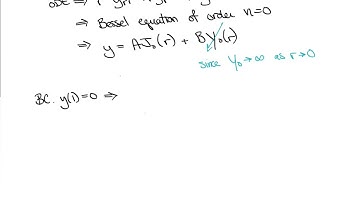 ODE ⇒ r
⇒ Bessel equation of order n=0
⇒ y = AJ₀(r) + BY₀(r)
since Y₀→∞ as r→0
BC. y(1)=0 ⇒